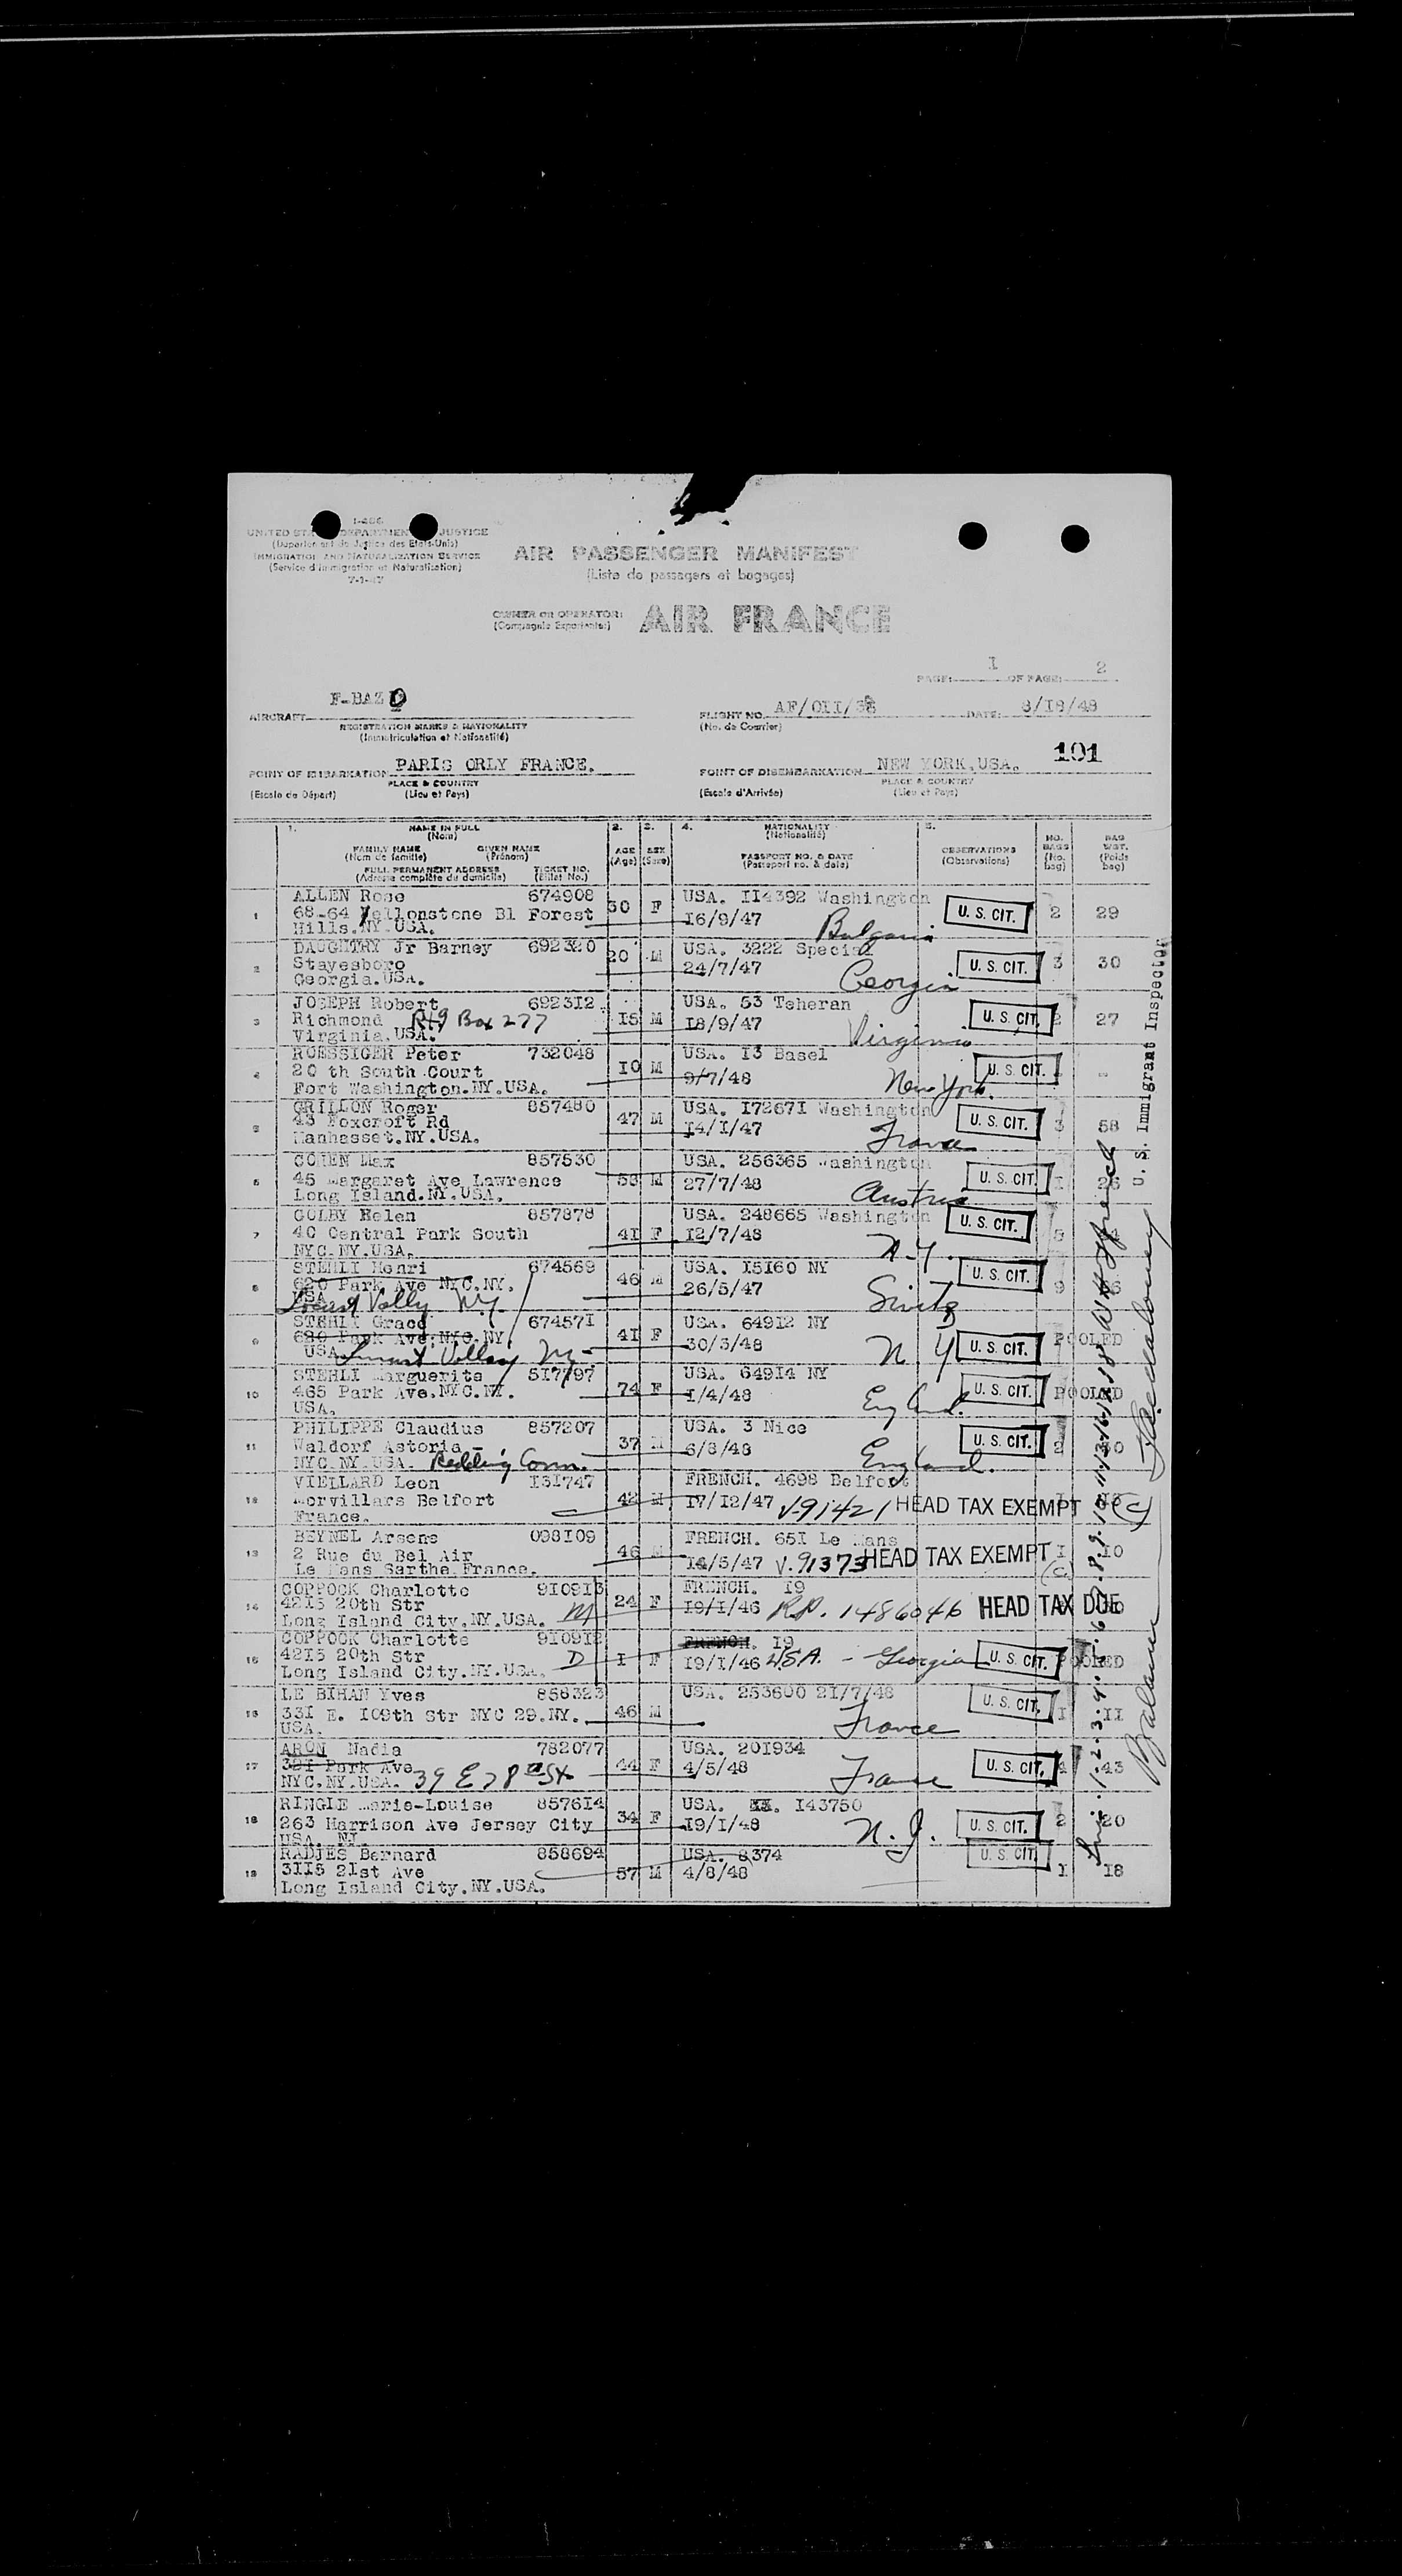 I-466
UNITED STATES DEPARTMENT OF JUSTICE
(Département de Justice des Etats-Unis)
IMMIGRATION AND NATURALIZATION SERVICE
(Service d'immigration et Naturalisation)
7-1-47
AIR PASSENGER MANIFEST
(Liste de passagers et bagages)
OWNER OR OPERATOR:
(Compagnie Exploitante:)
AIR FRANCE
PAGE: I OF PAGE: 2
AIRCRAFT F-BAZO
REGISTRATION MARKS & NATIONALITY
(Immatriculation et Nationalité)
FLIGHT NO. AF/OII/38 DATE: 8/I8/48
(No. de Courrier)
101
POINT OF EMBARKATION PARIS ORLY FRANCE.
PLACE & COUNTRY
(Escale de Départ) (Lieu et Pays)
POINT OF DISEMBARKATION NEW YORK,USA.
PLACE & COUNTRY
(Escale d'Arrivée) (Lieu et Pays)
1. NAME IN FULL
(Nom)
FAMILY NAME GIVEN NAME
(Nom de famille) (Prénom)
FULL PERMANENT ADDRESS TICKET NO.
(Adresse complète du domicile) (Billet No.)
2. AGE (Age)
3. SEX (Sexe)
4. NATIONALITY
(Nationalité)
PASSPORT NO. & DATE
(Passeport no. & date)
5. OBSERVATIONS
(Observations)
NO. BAGS (No. bag)
BAG WGT. (Poids bag)
1 ALLEN Rose 674908 50 F USA. II4392 Washington U. S. CIT. 2 29
68-64 Yellonstone Bl Forest I6/9/47 Bulgaria
Hills.NY.USA.
2 DAUGHTRY Jr Barney 692320 20 M USA. 3222 Special U. S. CIT. 3 30
Stayesboro 24/7/47 Georgia
Georgia.USA.
3 JOSEPH Robert 6923I2 I5 M USA. 53 Teheran U. S. CIT. 2 27
Richmond Rt9 Box 277 I8/9/47 Virginia
Virginia.USA.
4 ROESSIGER Peter 732048 IO M USA. I3 Basel U. S. CIT.
20 th South Court 9/7/48 New York.
Fort Washington.NY.USA.
5 GRILLON Roger 857480 47 M USA. I7267I Washington U. S. CIT. 3 58
43 Foxcroft Rd I4/I/47 France
Manhasset.NY.USA.
6 COHEN Max 857530 M USA. 256365 Washington U. S. CIT. I 26
45 Margaret Ave Lawrence 27/7/48 Austria
Long Island.NY.USA.
7 GOLBY Helen 857878 4I F USA. 248665 Washington U. S. CIT.
40 Central Park South I2/7/48 N.Y.
NYC.NY.USA.
8 STEHLI Henri 674569 46 M USA. I5I60 NY U. S. CIT. 9
620 Park Ave NYC.NY. 26/5/47
USA
Locust Vally NY
9 STEHLI Grace 67457I 4I F USA. 649I2 NY U. S. CIT. POOLED
620 Park Ave.NYC.NY. 30/3/48 N Y
USA Locust Valley
10 STEHLI Marguerite 5I7797 74 F USA. 649I4 NY U. S. CIT. POOLED
465 Park Ave.NYC.NY. I/4/48 England.
USA.
11 PHILIPPE Claudius 857207 37 M USA. 3 Nice U. S. CIT. 2
Waldorf Astoria 6/8/48 England.
NYC.NY.USA. Redding Conn.
12 VIELLARD Leon I3I747 42 M FRENCH. 4698 Belfort
Morvillars Belfort I7/I2/47 V-91421 HEAD TAX EXEMPT
France.
13 BEYNEL Arsene 098I09 46 M FRENCH. 65I Le Mans I IO
2 Rue du Bel Air I4/5/47 V.91373 HEAD TAX EXEMPT (C)
Le Mans Sarthe.France.
14 COPPOCK Charlotte 9I09I3 24 F FRENCH. I9
42I5 20th Str I9/I/46 R.P. 1486046 HEAD TAX DUE
Long Island City.NY.USA. M
15 COPPOCK Charlotte 9I09I2 I F FRENCH. I9 POOLED
42I5 20th Str I9/I/46 USA. - Georgia U. S. CIT.
Long Island City.NY.USA. D
16 LE BIHAN Yves 858323 46 M USA. 253600 2I/7/48 U. S. CIT. I II
33I E. I09th Str NYC 29.NY. France
USA.
17 ARON Nadia 782077 44 F USA. 20I934 U. S. CIT. 4 43
32I Park Ave 4/5/48 France
NYC.NY.USA. 39 E 78th St
18 RINGLE Marie-Louise 8576I4 34 F USA. I43750 U. S. CIT. 2 20
263 Harrison Ave Jersey City I9/I/48 N.J.
USA. NJ.
19 RADJES Bernard 858694 57 M USA. 8374 U. S. CIT. I I8
3II5 2Ist Ave 4/8/48
Long Island City.NY.USA.
U. S. Immigrant Inspector